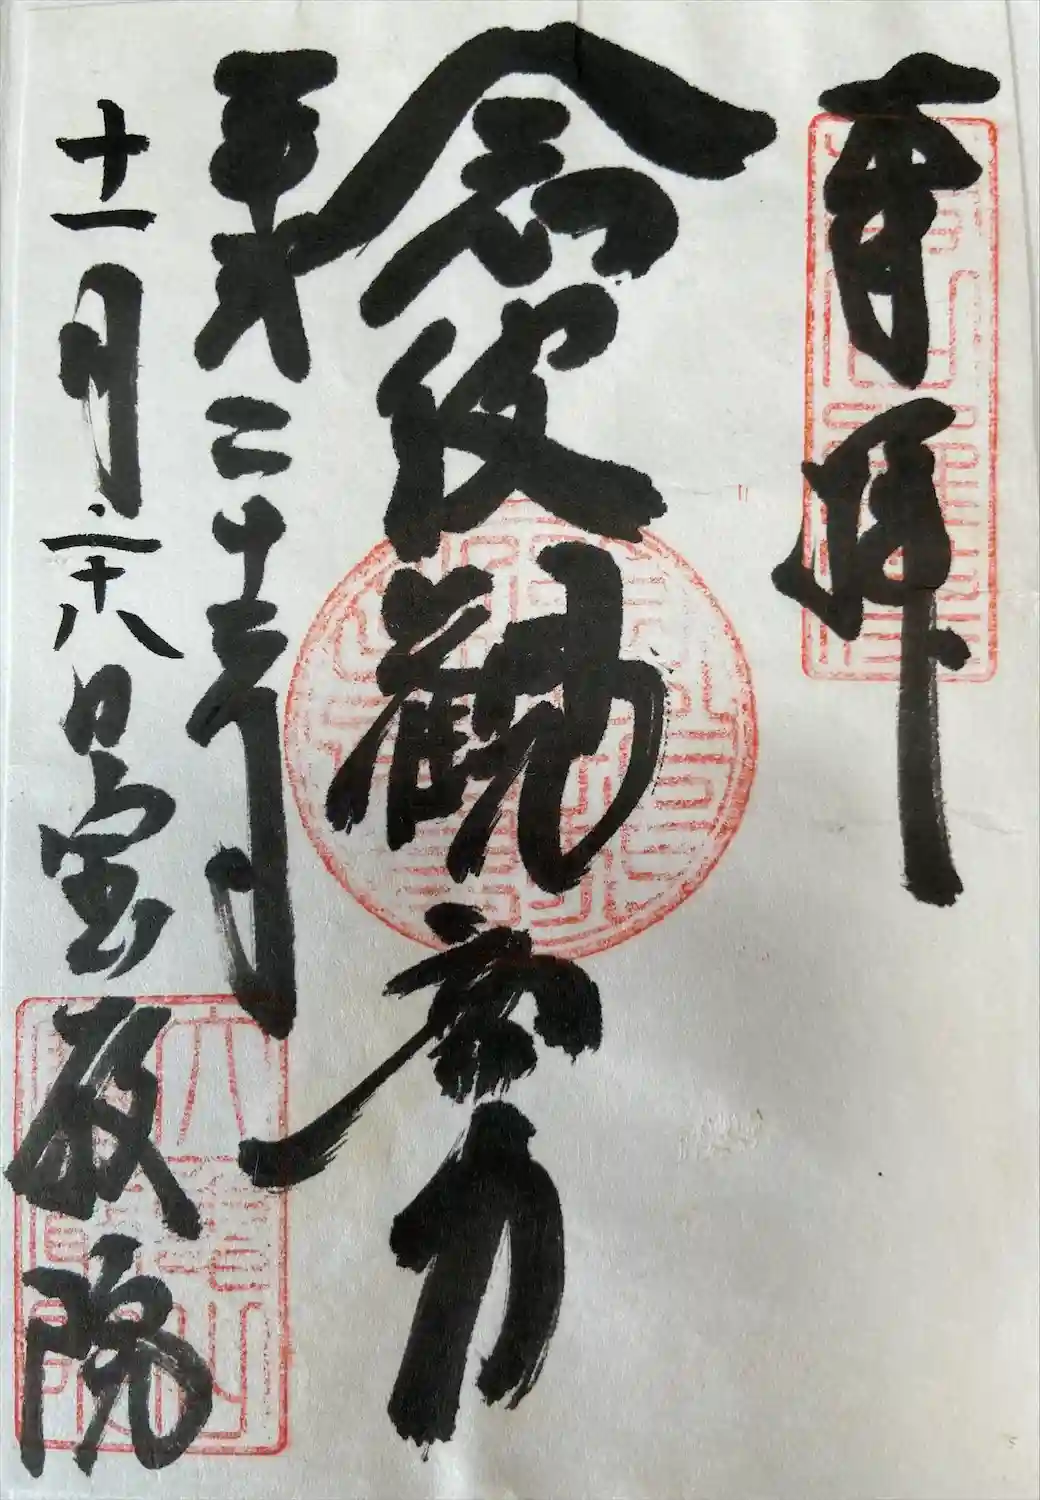 奉拝
念彼観音力
平成二十年
十一月二十八日宝厳院